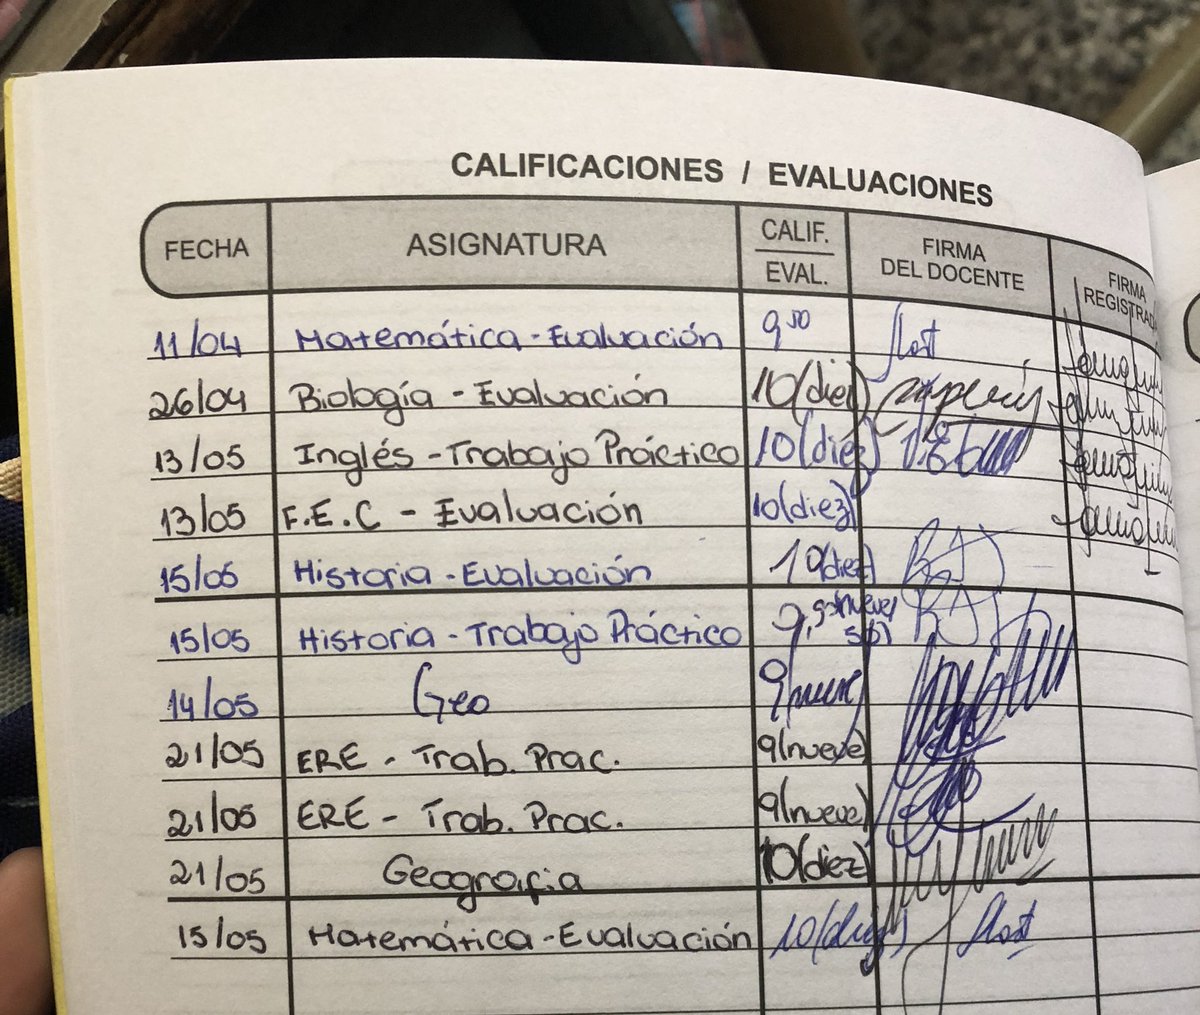 CALIFICACIONES / EVALUACIONES
FECHA ASIGNATURA CALIF. EVAL. FIRMA DEL DOCENTE FIRMA REGISTRADA
11/04 Matemática - Evaluación 9,50
26/04 Biología - Evaluación 10 (diez)
13/05 Inglés - Trabajo Práctico 10 (diez)
13/05 F.E.C - Evaluación 10 (diez)
15/05 Historia - Evaluación 10 (diez)
15/05 Historia - Trabajo Práctico 9,50 (nueve
14/05 Geo 9 (nueve)
21/05 ERE - Trab. Prac. 9 (nueve)
21/05 ERE - Trab. Prac. 9 (nueve)
21/05 Geografia 10 (diez)
15/05 Matemática - Evaluación 10 (diez)